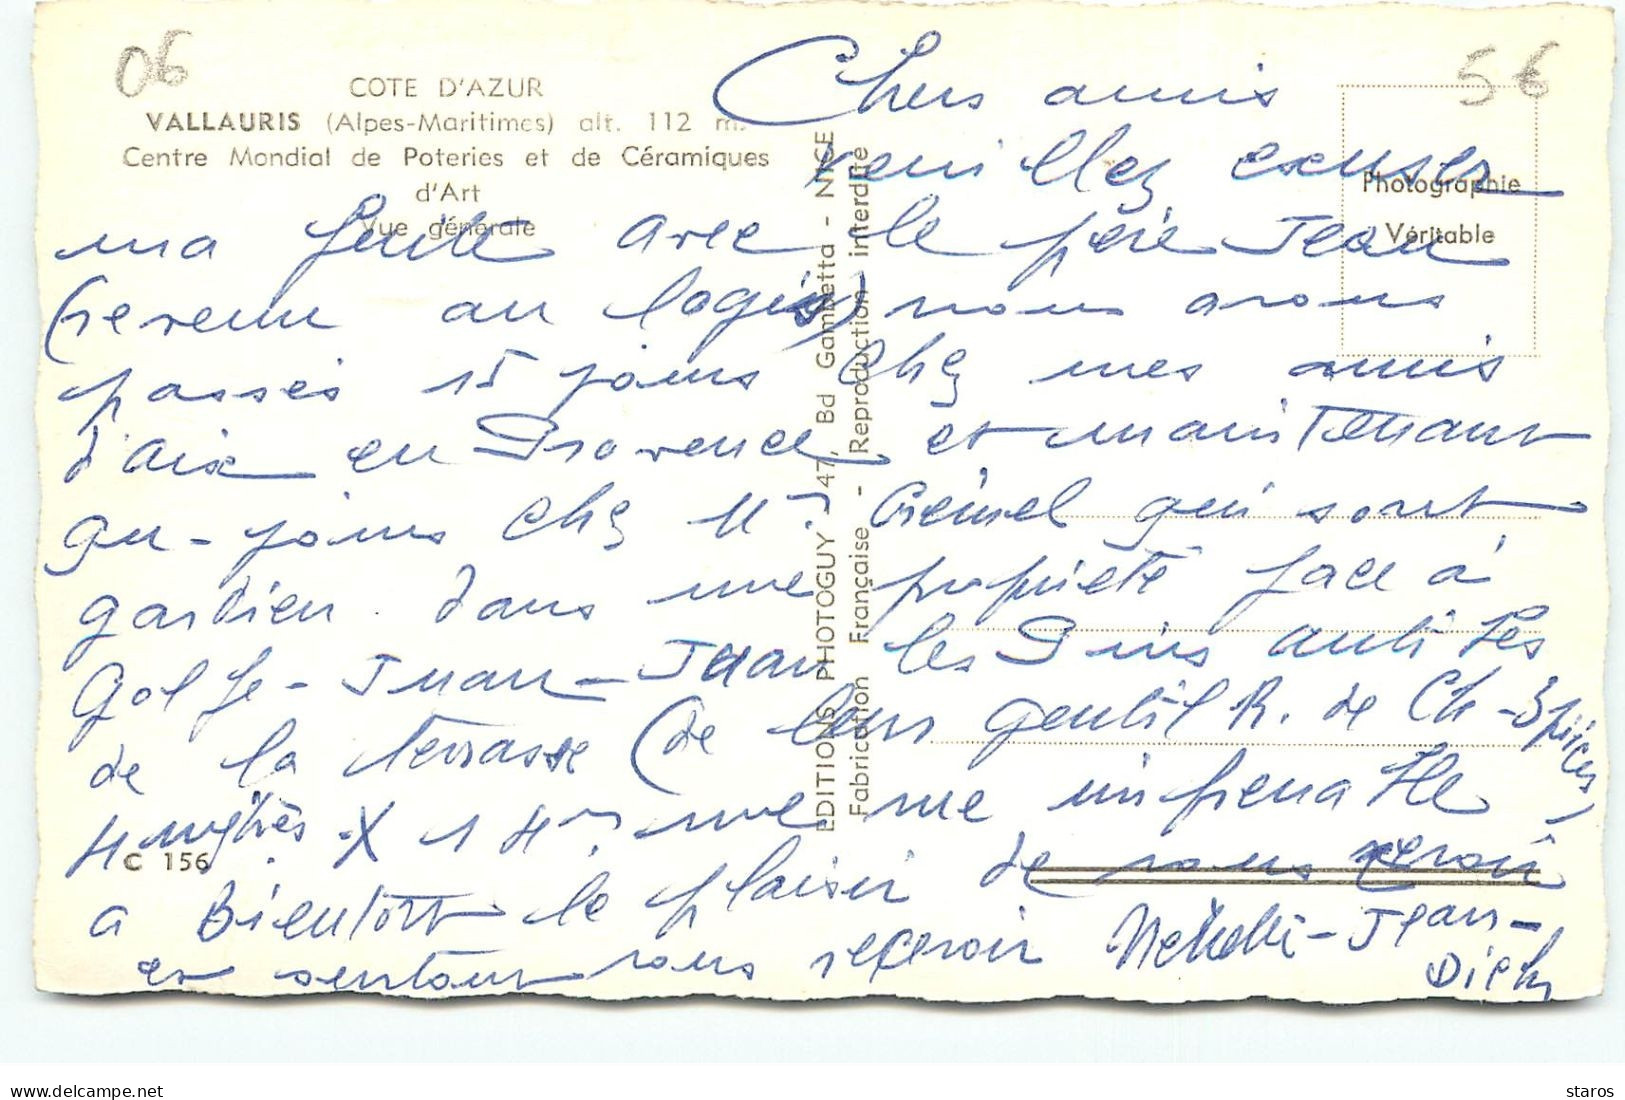 06
56
COTE D'AZUR
VALLAURIS (Alpes-Maritimes) alt. 112 m.
Centre Mondial de Poteries et de Céramiques
d'Art
Vue générale
Photographie
Véritable
EDITIONS PHOTOGUY - 47, Bd Gambetta - NICE
Fabrication Française - Reproduction interdite
C 156
Chers amis
veuillez excuser
ma fuite avec le père Jean
(revenu au logis) nous avons
passés 15 jours chez mes amis
d'aix en Provence et maintenant
qu-jours chez Mr. qui sont
gardien dans une propriété face à
Golfe-Juan-Juan les Pins antibes
de la terrasse (de leur gentil R. de Ch-3 pièces)
4 X 14m une vue imprenable
a Bientôt le plaisir de vous revoir
et surtout vous recevoir Jean-
staros